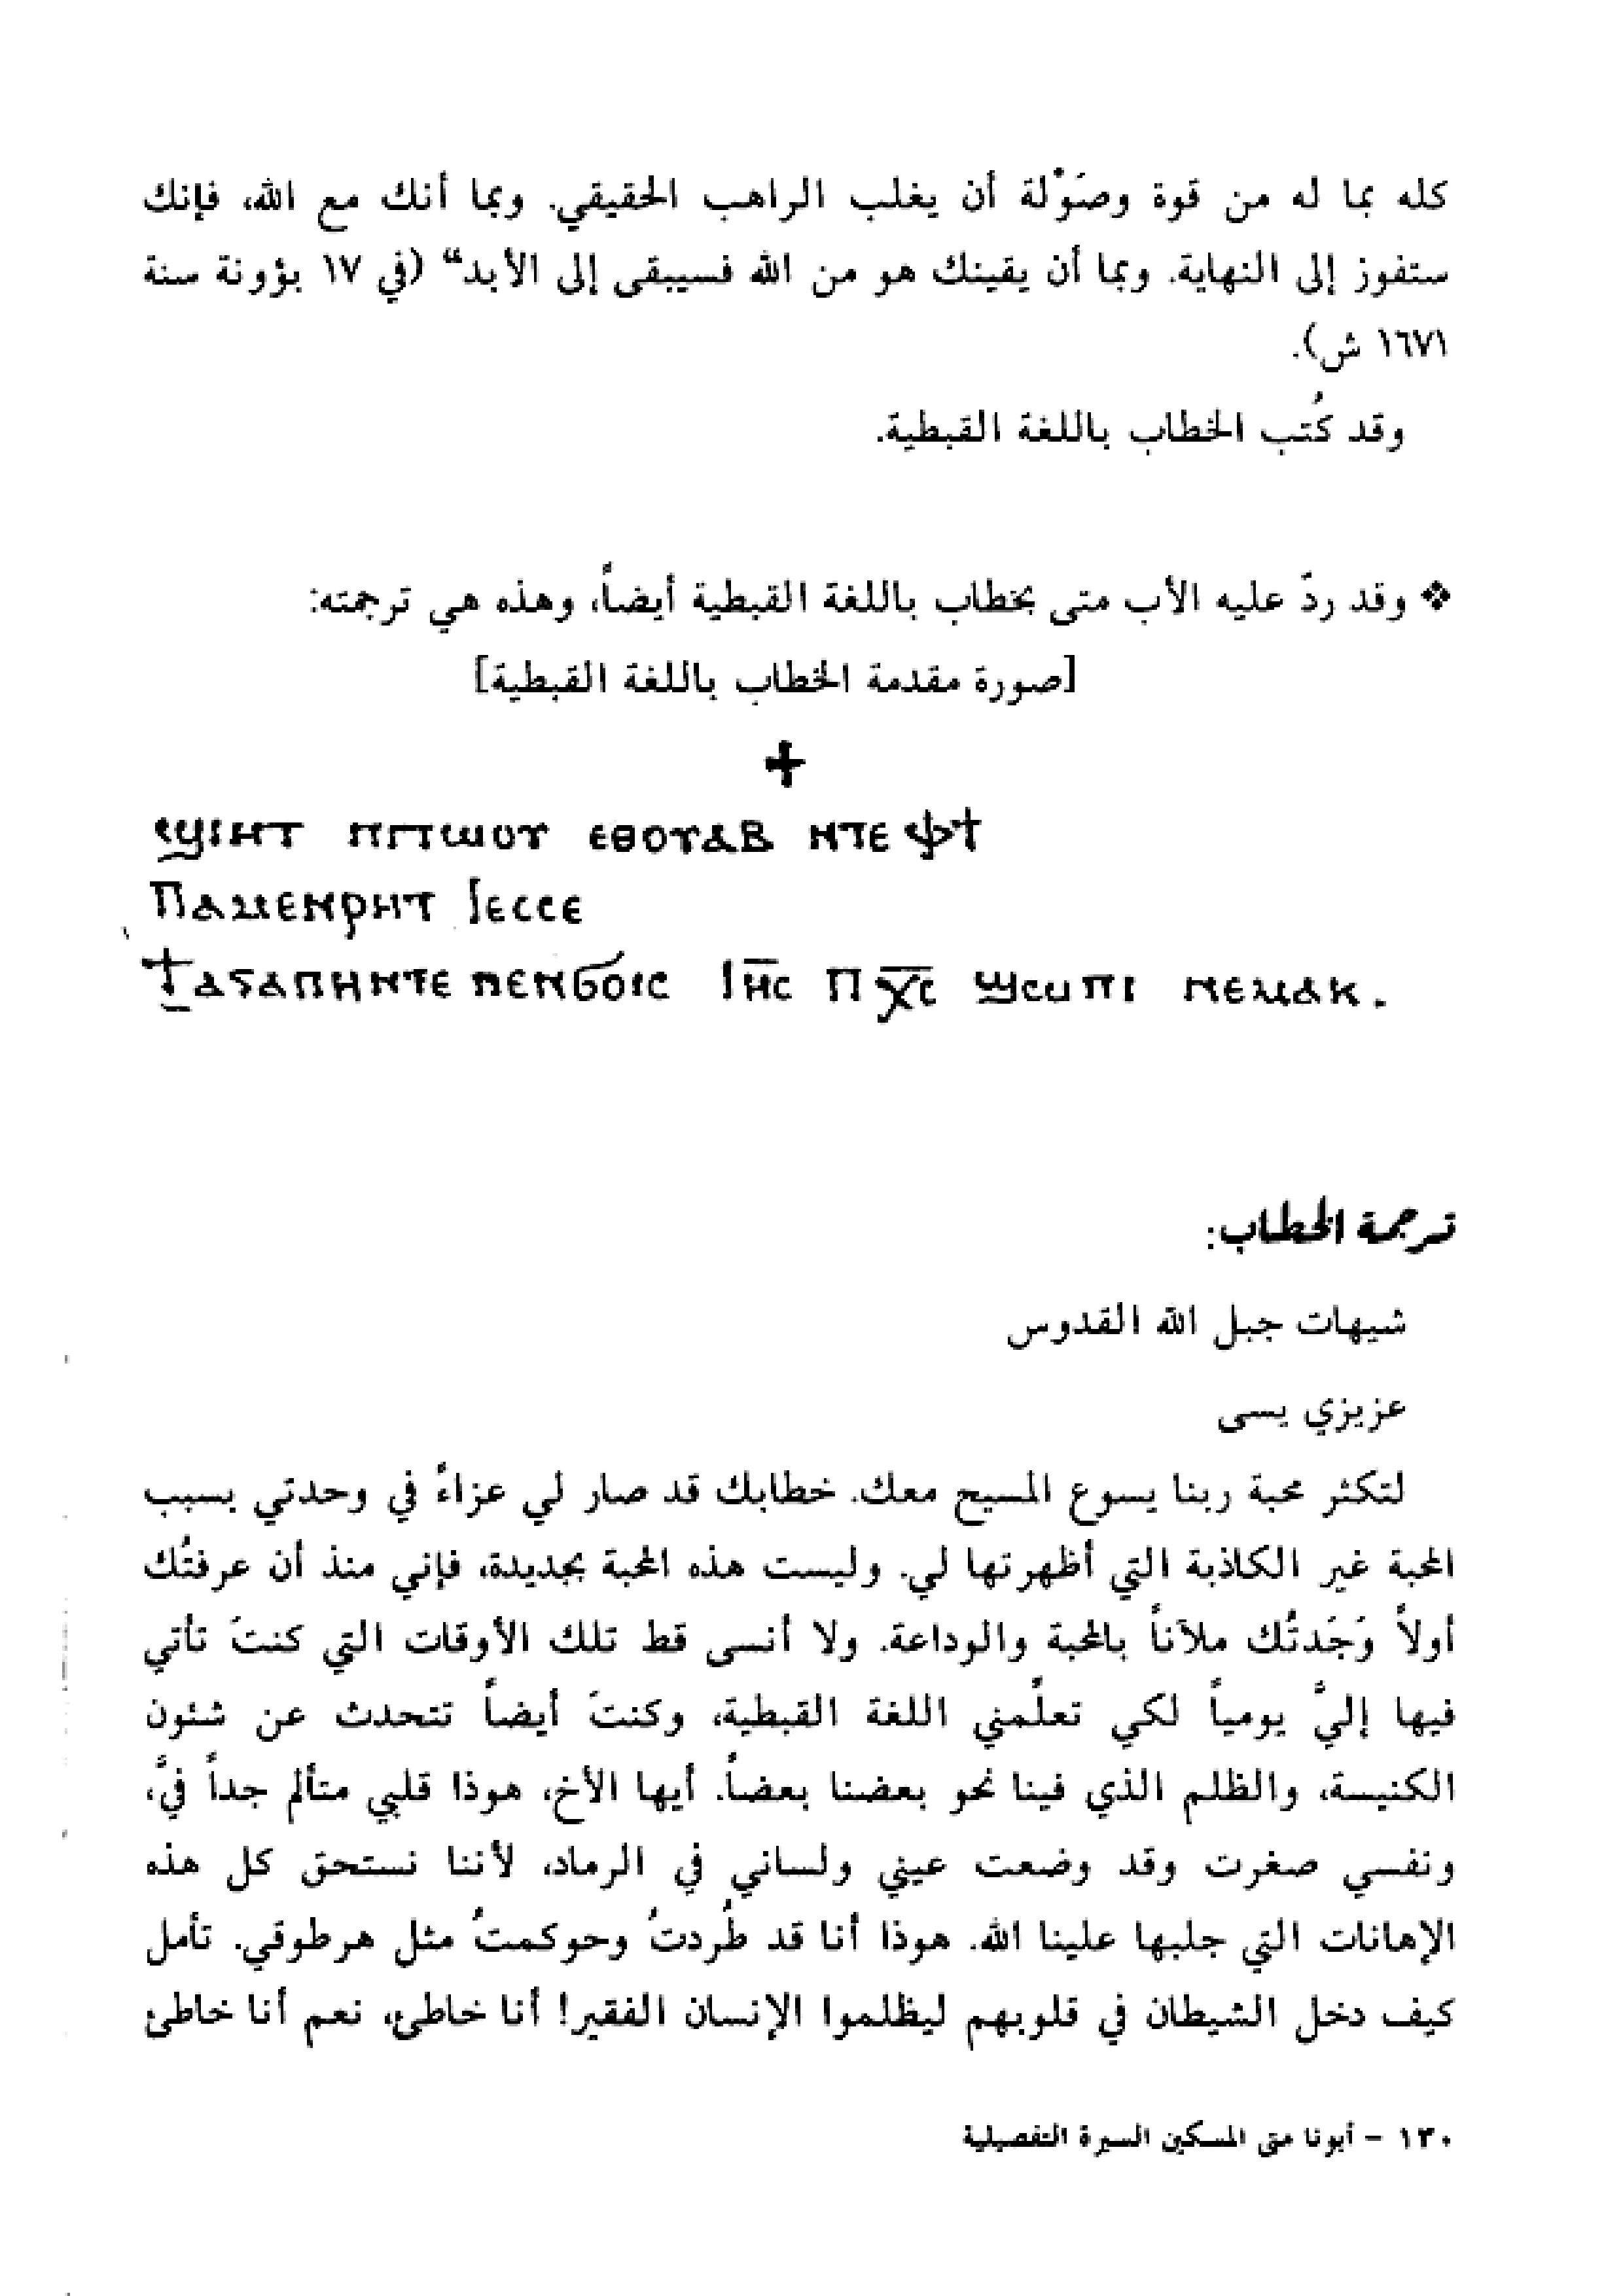 كله بما له من قوة وصَوْلة أن يغلب الراهب الحقيقي. وبما أنك مع الله، فإنك
ستفوز إلى النهاية. وبما أن يقينك هو من الله فسيبقى إلى الأبد“ (في ١٧ بؤونة سنة
١٦٧١ ش).
وقد كُتب الخطاب باللغة القبطية.
❖ وقد ردّ عليه الأب متى بخطاب باللغة القبطية أيضاً، وهذه هي ترجمته:
[صورة مقدمة الخطاب باللغة القبطية]
✚
ϣⲓⲏⲧ ⲡⲓⲧⲱⲟⲩ ⲉⲑⲟⲩⲁⲃ ⲛⲧⲉ ⲫϯ
Ⲡⲁⲙⲉⲛⲣⲏⲧ Ⲓⲉⲥⲥⲉ
ϯⲁⲅⲁⲡⲏ ⲛⲧⲉ ⲡⲉⲛϭⲟⲓⲥ Ⲓⲏ̅ⲥ Ⲡⲭ̅ⲥ ϣⲱⲡⲓ ⲛⲉⲙⲁⲕ.
ترجمة الخطاب:
شيهات جبل الله القدوس
عزيزي يسى
لتكثر محبة ربنا يسوع المسيح معك. خطابك قد صار لي عزاءً في وحدتي بسبب
المحبة غير الكاذبة التي أظهرتها لي. وليست هذه المحبة بجديدة، فإني منذ أن عرفتُك
أولاً وَجَدتُك ملآناً بالمحبة والوداعة. ولا أنسى قط تلك الأوقات التي كنتَ تأتي
فيها إليَّ يومياً لكي تعلِّمني اللغة القبطية، وكنتَ أيضاً تتحدث عن شئون
الكنيسة، والظلم الذي فينا نحو بعضنا بعضاً. أيها الأخ، هوذا قلبي متألم جداً فيَّ،
ونفسي صغرت وقد وضعت عيني ولساني في الرماد، لأننا نستحق كل هذه
الإهانات التي جلبها علينا الله. هوذا أنا قد طُردتُ وحوكمتُ مثل هرطوقي. تأمل
كيف دخل الشيطان في قلوبهم ليظلموا الإنسان الفقير! أنا خاطئ، نعم أنا خاطئ
١٣٠ – أبونا متى المسكين السيرة التفصيلية